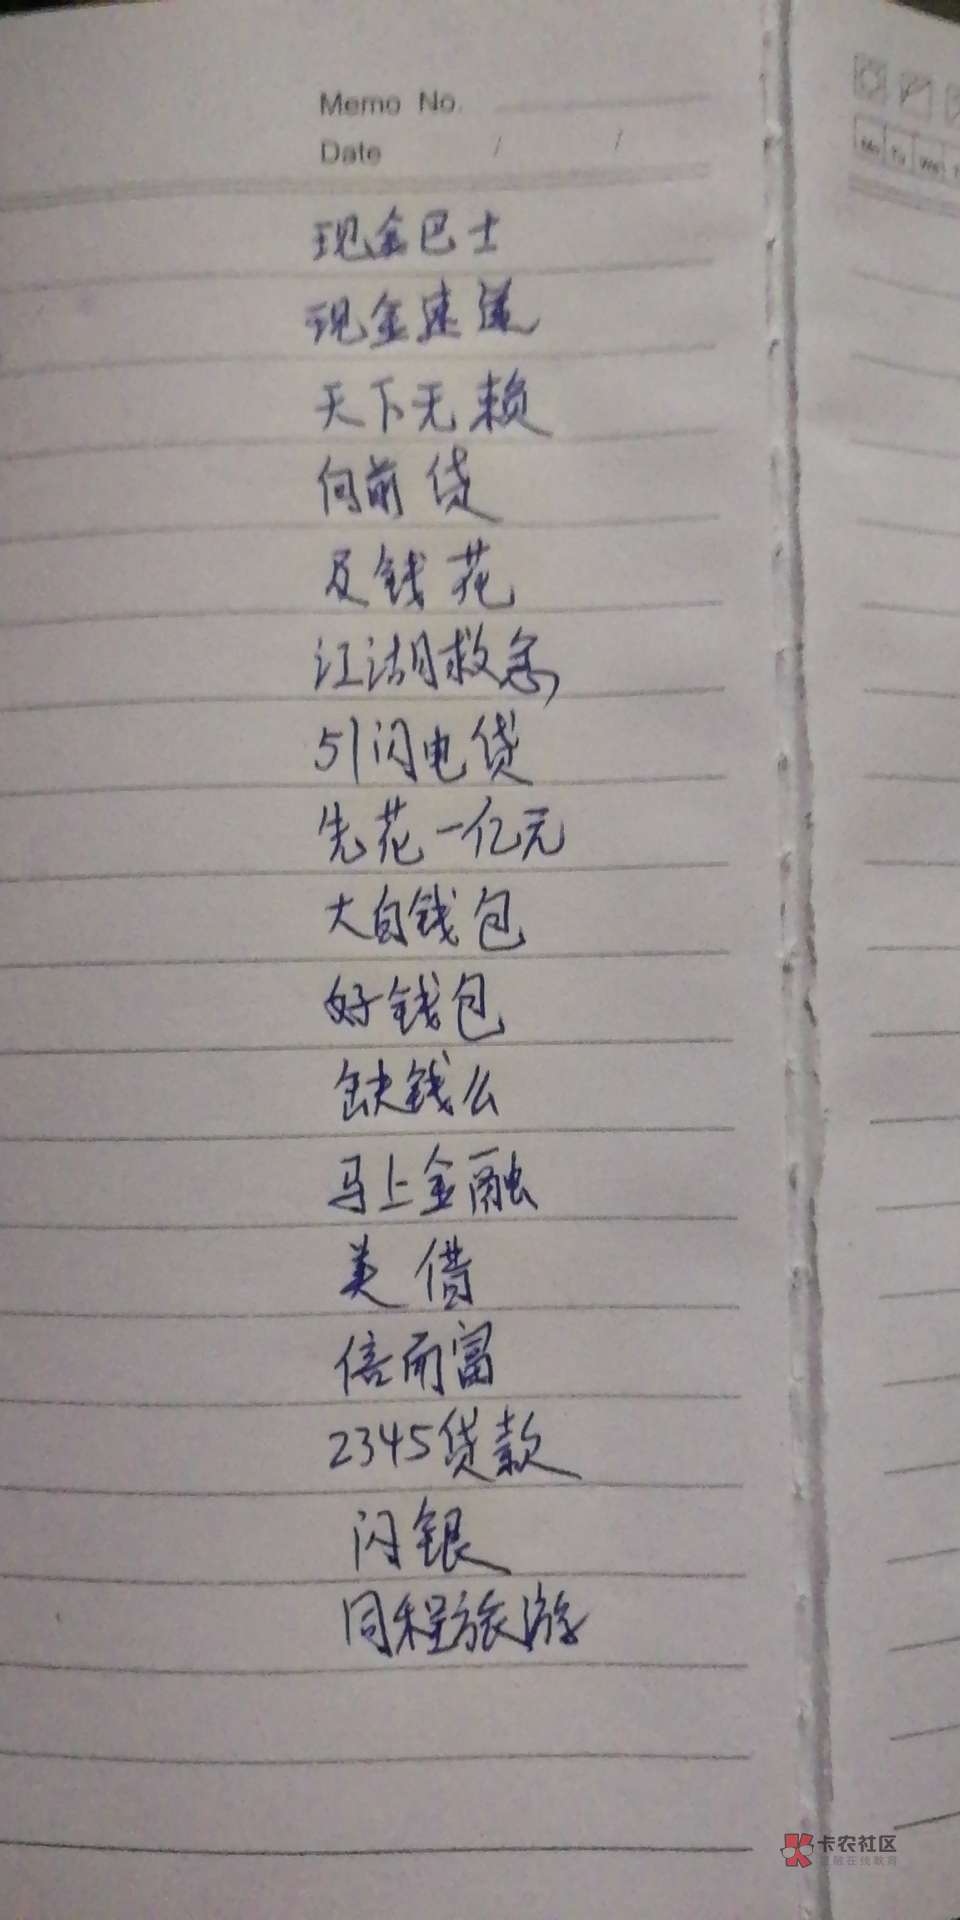 Memo No.
Date / /
Mo Tu We
现金巴士
现金速递
天下无赖
向前贷
及钱花
江湖救急
51闪电贷
先花一亿元
大白钱包
好钱包
缺钱么
马上金融
美借
信而富
2345贷款
闪银
同程旅游
卡农社区
金融在线教育